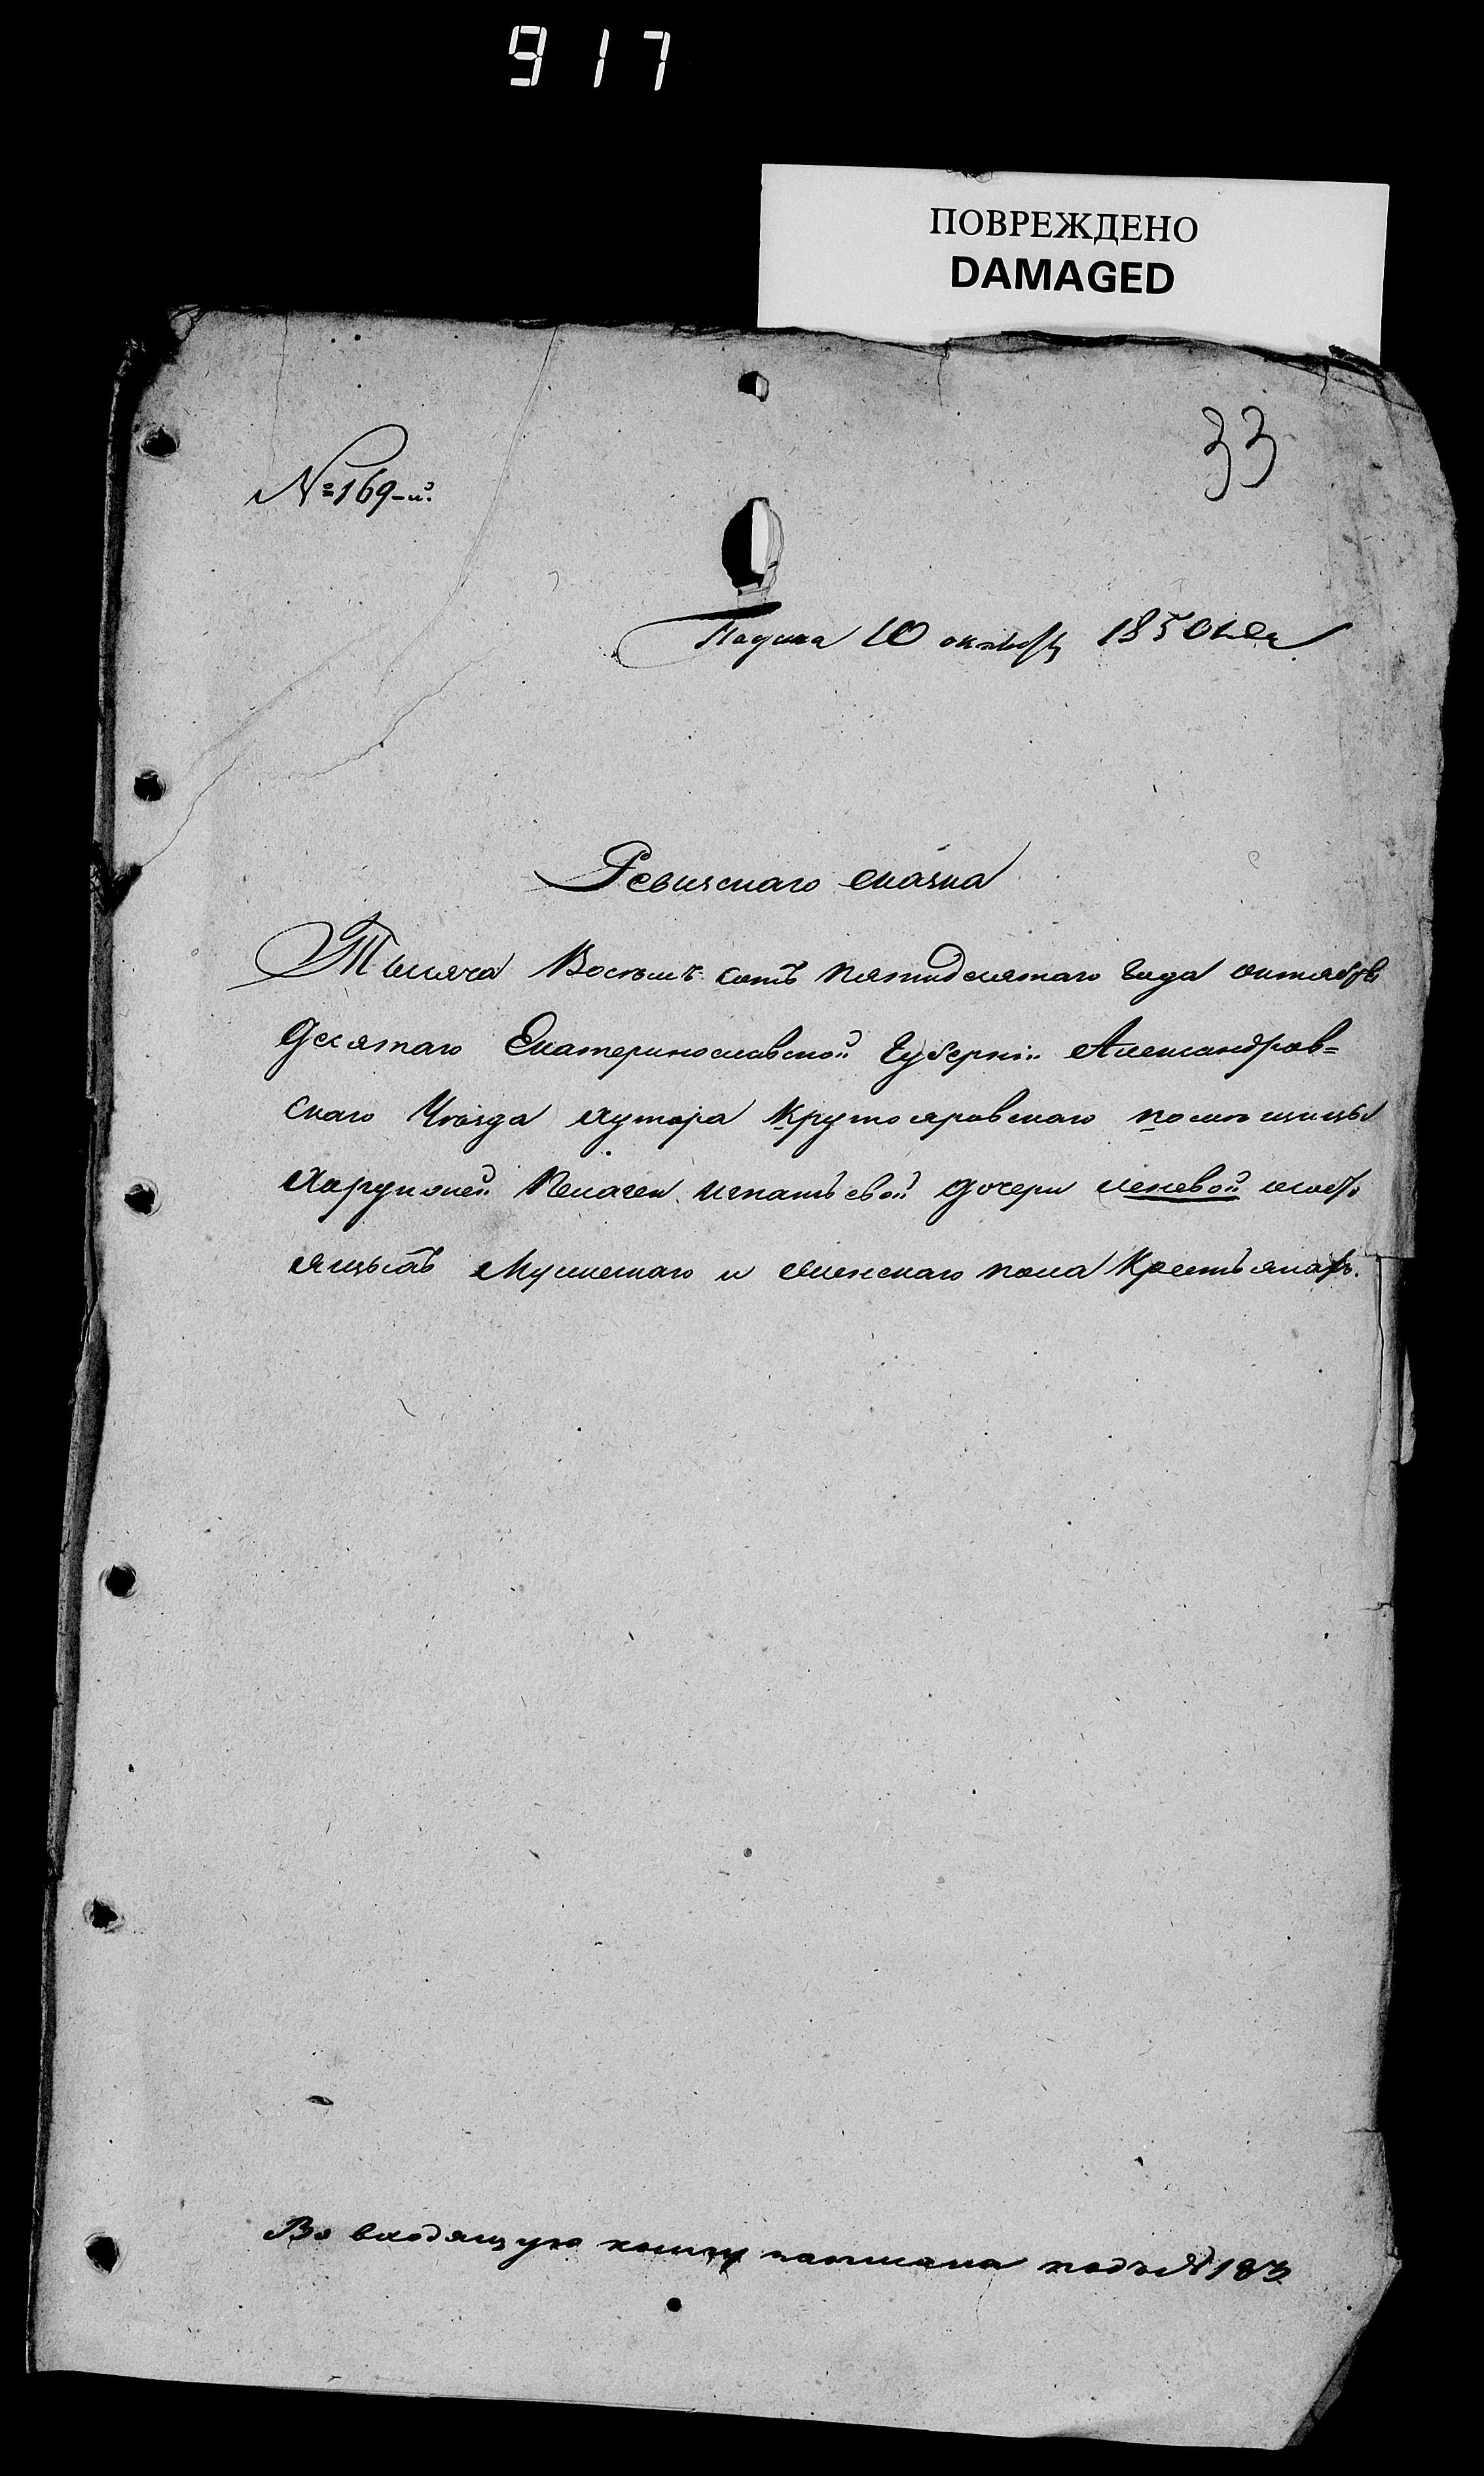 917
ПОВРЕЖДЕНО
DAMAGED
33
№169-й.
Подана 10 октября 1850 года
Ревизскаго сказка
Тысяча Восемь сотъ пятидесятаго года октября
десятаго Екатеринославской Губерніи Александров=
скаго Уѣзда хутора Крутояровскаго помѣщицы
Харунжей Пелагеи Игнатьевой дочери
Мужескаго и женскаго пола Крестьянахъ.
Во входящую книгу записана подъ № 183